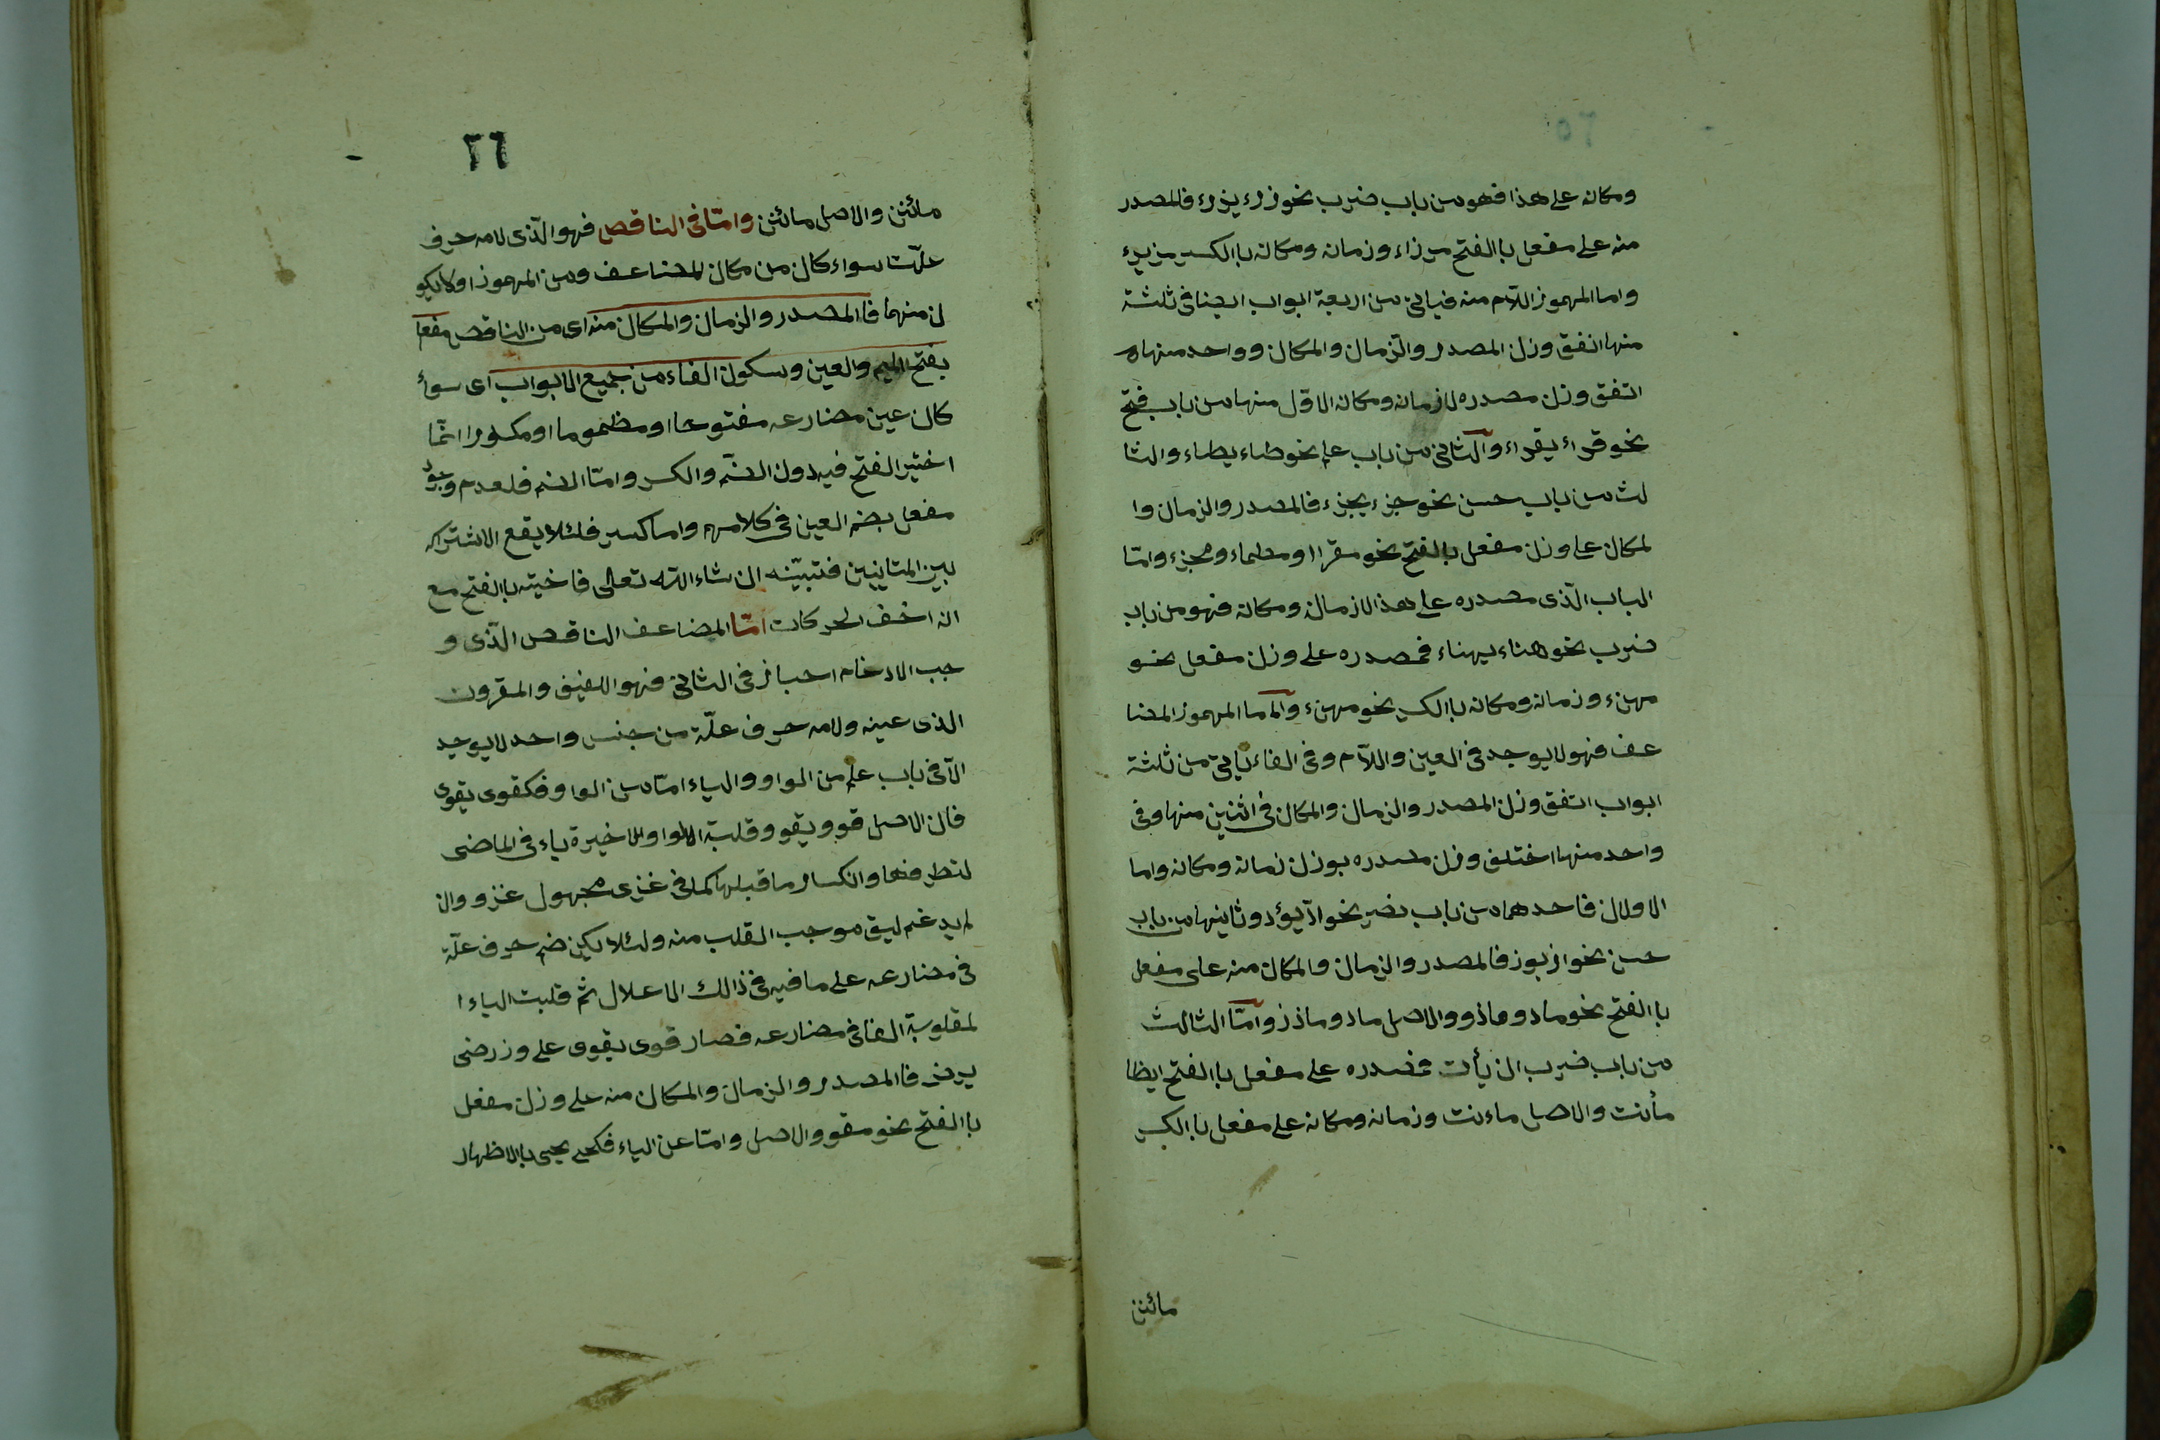 ومكانه على هذا فهو من باب ضرب نحو زرء يزرء فالمصدر
منه على مفعل با الفتح مرزاء وزمانه ومكانه با الكسر مزيرء
واما المهموز اللآم منه فياتى من اربعة ابواب ايضا فى ثلثة
منها اتفق وزن المصدر والزمان والمكان وواحد منها م
اتفق وزن مصدره لازمانه ومكانه الاوّل منها من باب فتح
نحو قراء يقراء والثانى من باب علم نحو طاء يطاء والثا
لث من باب حسن نحو جزء يجزء فالمصدر والزمان وا
لمكان على وزن مفعل بالفتح نحو مقرا ومطماء ومجزء وامّا
الباب الّذى مصدره على هذا لازمان ومكانه فهو من باب
ضرب نحو هناء يهناء فمصدره على وزن مفعل نحو
مهنء وزمانه ومكانه با الكسر نحو مهنء واما المهموز المضا
عف فهو لا يوجد فى العين واللآم وفى الفاء ياتى من ثلثة
ابواب اتفق وزن المصدر والزمان والمكان فى اثنين منها وفى
واحد منها اختلف وزن مصدره بوزن زمانه ومكانه واما
الاولان فاحدهما من باب نصر نحو ادّ يؤد وثانيها من باب
حسن نحو از يوز فالمصدر والزمان والمكان منه على مفعل
با الفتح نحو ماد وماذو والاصل مادد وماذز وامّا الثالث
من باب ضرب ان يأن فمصدره على مفعل با الفتح ايظا
مأنت والاصل ماءنت وزمانه ومكانه على مفعل با الكسر
مائن
٢٦
مائن والاصل مائن وامّا فى الناقص فهو الّذى لامه حرف
علّت سواء كان من مكان المضاعف ومن المهموز اولا يكو
ن منهما فا المصدر والزمان والمكان منه اى من الناقص مفعل
بفتح الميم والعين وسكون الفاء من جميع الابواب اى سواء
كان عين مضارعه مفتوحا او مظموما او مكسورا انّما
اختير الفتح فيه دون الضّم والكسر وامّا الضم فلعدم وجود
مفعل بضم العين فى كلامهم واما كسر فلئلا يقع الاشتراك
بين المتانيين فتبيّنه ان شاء اللّه تعالى فاختير با الفتح مع
انه اخف الحركات امّا المضاعف الناقص الّذى و
جب الادغام احبار فى الثانى فهو اللفيف والمقرون
الذى عينه ولامه حرف علّة من جنس واحد لا يوجد
الاّ فى باب علم من الواو والياء امّا من الواو فكقوى يقوى
فان الاصل قوو ويقوو قلبة الواو الاخيرة ياء فى الماضى
لتطرفها وانكسار ما قبلها كما فى غزى مجهول غزو وان
لم يدغم ليق موجب القلب منه ولئلا يكن ضم حرف علّة
فى مضارعه على ما فيه فى ذالك الاعلال ثم قلبت الياء ا
لمقلوبة الفا فى مضارعه فصار قوى يقوى على وز رضى
يرضى فا المصدر والزمان والمكان منه على وزن مفعل
با الفتح نحو مقوو والاصل وامّا عن الياء فكحى يحيى بالاظهار